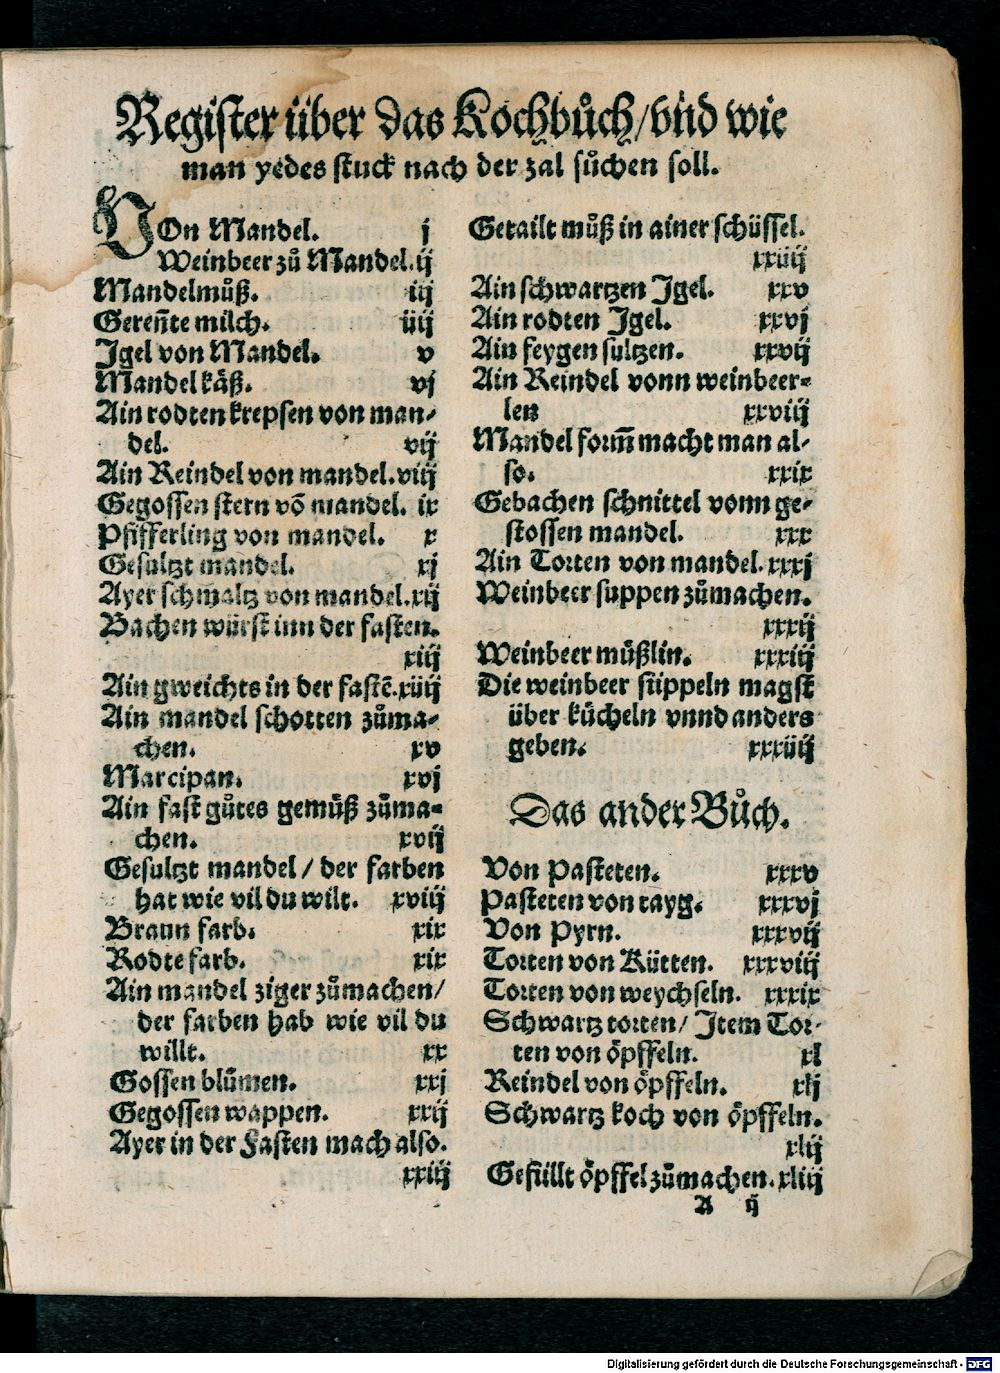 Register über das Kochbůch/vnd wie
man yedes stuck nach der zal sůchen soll.
VOn Mandel. j
Weinbeer zů Mandel. ij
Mandelmůß. iij
Gereñte milch. iiij
Igel von Mandel. v
Mandel käß. vj
Ain rodten krepsen von man-
del. vij
Ain Reindel von mandel. viij
Gegossen stern võ mandel. ix
Pfifferling von mandel. x
Gesultzt mandel. xj
Ayer schmaltz von mandel. xij
Bachen würst inn der fasten.
xiij
Ain gweichts in der fastẽ. xiiij
Ain mandel schotten zůma-
chen. xv
Marcipan. xvj
Ain fast gůtes gemůß zůma-
chen. xvij
Gesultzt mandel / der farben
hat wie vil du wilt. xviij
Braun farb. xix
Rodte farb. xix
Ain mandel ziger zůmachen/
der farben hab wie vil du
willt. xx
Gossen blůmen. xxj
Gegossen wappen. xxij
Ayer in der Fasten mach also.
xxiij
Getailt můß in ainer schüssel.
xxiiij
Ain schwartzen Igel. xxv
Ain rodten Igel. xxvj
Ain feygen sultzen. xxvij
Ain Reindel vonn weinbeer-
len xxviij
Mandel form̃ macht man al-
so. xxix
Gebachen schnittel vonn ge-
stossen mandel. xxx
Ain Torten von mandel. xxxj
Weinbeer suppen zůmachen.
xxxij
Weinbeer můßlin. xxxiij
Die weinbeer süppeln magst
über kůcheln vnnd anders
geben. xxxiiij
Das ander Bůch.
Von Pasteten. xxxv
Pasteten von tayg. xxxvj
Von Pyrn. xxxvij
Torten von Kütten. xxxviij
Torten von weychseln. xxxix
Schwartz torten/ Item Tor-
ten von öpffeln. xl
Reindel von öpffeln. xlj
Schwartz koch von öpffeln.
xlij
Gefüllt öpffel zůmachen. xliij
A ij
Digitalisierung gefördert durch die Deutsche Forschungsgemeinschaft - DFG